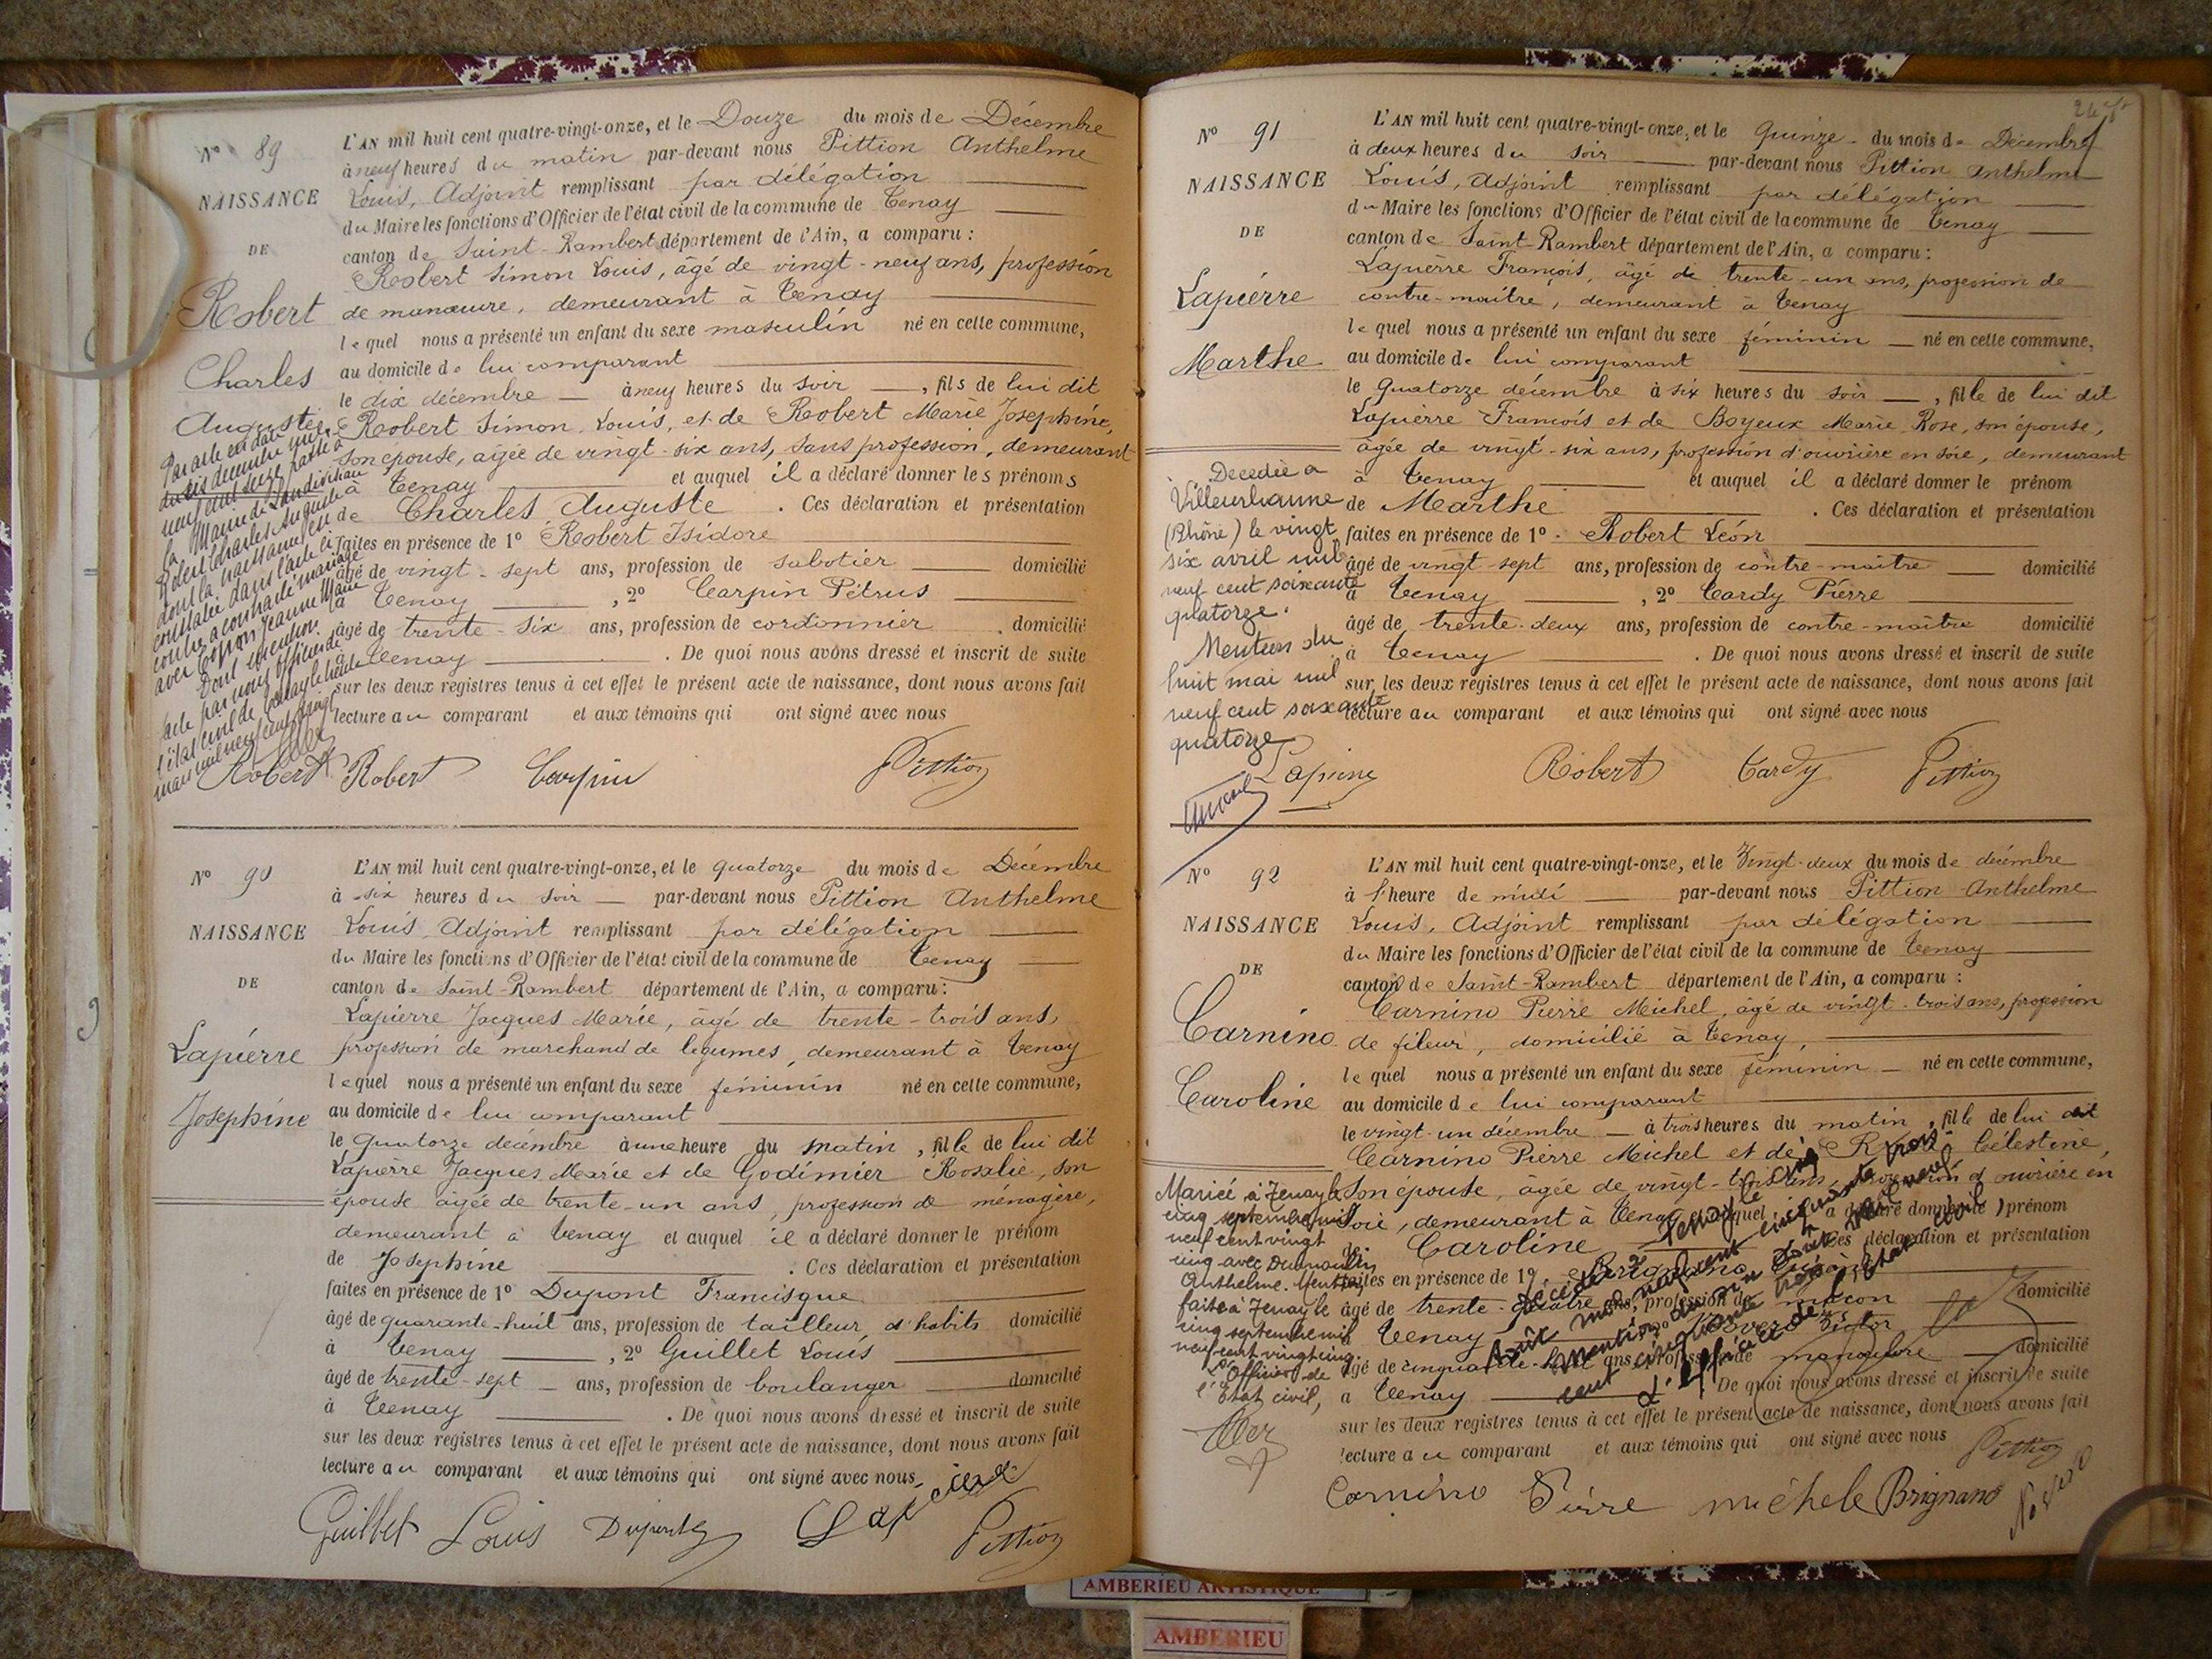 Nº 89
NAISSANCE
DE
Robert
Charles
Auguste
L'AN mil huit cent quatre-vingt-onze, et le Douze du mois de Décembre
à neuf heures du matin par-devant nous Pittion Anthelme
Louis, Adjoint remplissant par délégation
du Maire les fonctions d'Officier de l'état civil de la commune de Tenay
canton de Saint-Rambert département de l'Ain, a comparu :
Robert Simon Louis, âgé de vingt-neuf ans, profession
de manœuvre, demeurant à Tenay
lequel nous a présenté un enfant du sexe masculin né en cette commune,
au domicile de lui comparant
le dix décembre à neuf heures du soir, fils de lui dit
Robert Simon Louis, et de Robert Marie Josephine,
son épouse, âgée de vingt-six ans, sans profession, demeurant
à Tenay et auquel il a déclaré donner les prénoms
de Charles Auguste. Ces déclaration et présentation
faites en présence de 1º Robert Isidore
âgé de vingt-sept ans, profession de sabotier domicilié
à Tenay, 2º Carpin Pétrus
âgé de trente-six ans, profession de cordonnier, domicilié
à Tenay. De quoi nous avons dressé et inscrit de suite
sur les deux registres tenus à cet effet le présent acte de naissance, dont nous avons fait
lecture au comparant et aux témoins qui ont signé avec nous
Par acte en date
du six decembre mil
neuf cent seize passé à
la Mairie de Landivisiau
Robert Charles Auguste
dont la naissance est
constatée dans l'acte ci
contre a contracté mariage
avec Jeanne Marie
Dont mention
faite par nous officier de
l'état civil de Tenay le huit
mai mil neuf cent vingt
Robert Robert Carpin Pittion
Nº 90
NAISSANCE
DE
Lapierre
Josephine
L'AN mil huit cent quatre-vingt-onze, et le quatorze du mois de Décembre
à six heures du soir par-devant nous Pittion Anthelme
Louis, Adjoint remplissant par délégation
du Maire les fonctions d'Officier de l'état civil de la commune de Tenay
canton de Saint-Rambert département de l'Ain, a comparu :
Lapierre Jacques Marie, âgé de trente-trois ans,
profession de marchand de legumes, demeurant à Tenay
lequel nous a présenté un enfant du sexe féminin né en cette commune,
au domicile de lui comparant
le quatorze décembre à une heure du matin, fille de lui dit
Lapierre Jacques Marie et de Godimier Rosalie, son
épouse âgée de trente-un ans, profession de ménagère,
demeurant à Tenay et auquel il a déclaré donner le prénom
de Josephine. Ces déclaration et présentation
faites en présence de 1º Dupont Francisque
âgé de quarante-huit ans, profession de tailleur d'habits domicilié
à Tenay, 2º Guillet Louis
âgé de trente-sept ans, profession de boulanger domicilié
à Tenay. De quoi nous avons dressé et inscrit de suite
sur les deux registres tenus à cet effet le présent acte de naissance, dont nous avons fait
lecture au comparant et aux témoins qui ont signé avec nous.
Guillet Louis Dupont Lapierre Pittion
Nº 91
NAISSANCE
DE
Lapierre
Marthe
L'AN mil huit cent quatre-vingt-onze, et le quinze du mois de Décembre
à deux heures du soir par-devant nous Pittion Anthelme
Louis, Adjoint remplissant par délégation
du Maire les fonctions d'Officier de l'état civil de la commune de Tenay
canton de Saint-Rambert département de l'Ain, a comparu :
Lapierre François, âgé de trente-un ans, profession de
contre-maître, demeurant à Tenay
lequel nous a présenté un enfant du sexe féminin né en cette commune,
au domicile de lui comparant
le quatorze décembre à six heures du soir, fille de lui dit
Lapierre François et de Boyeux Marie Rose, son épouse,
âgée de vingt-six ans, profession d'ouvrière en soie, demeurant
à Tenay et auquel il a déclaré donner le prénom
de Marthe. Ces déclaration et présentation
faites en présence de 1º Robert Léon
âgé de vingt-sept ans, profession de contre-maître domicilié
à Tenay, 2º Cardy Pierre
âgé de trente-deux ans, profession de contre-maître domicilié
à Tenay. De quoi nous avons dressé et inscrit de suite
sur les deux registres tenus à cet effet le présent acte de naissance, dont nous avons fait
lecture au comparant et aux témoins qui ont signé avec nous
Decedée à
Villeurbanne
(Rhône) le vingt
six avril mil
neuf cent soixante
quatorze.
Mention du
huit mai mil
neuf cent soixante
quatorze
Lapierre Robert Cardy Pittion
Nº 92
NAISSANCE
DE
Carnino
Caroline
L'AN mil huit cent quatre-vingt-onze, et le Vingt-deux du mois de décembre
à l'heure de midi par-devant nous Pittion Anthelme
Louis, Adjoint remplissant par délégation
du Maire les fonctions d'Officier de l'état civil de la commune de Tenay
canton de Saint-Rambert département de l'Ain, a comparu :
Carnino Pierre Michel, âgé de vingt-trois ans, profession
de fileur, domicilié à Tenay,
lequel nous a présenté un enfant du sexe féminin né en cette commune,
au domicile de lui comparant
le vingt-un décembre à trois heures du matin, fille de lui dit
Carnino Pierre Michel et de Célestine,
son épouse, âgée de vingt-trois ans, profession d'ouvrière en
soie, demeurant à Tenay et auquel il a déclaré donner le prénom
de Caroline Ces déclaration et présentation
faites en présence de 1º Brignano
âgé de trente-quatre ans, profession de maçon domicilié
à Tenay, 2º Novero Victor
âgé de cinquante-huit ans, profession de manœuvre domicilié
à Tenay. De quoi nous avons dressé et inscrit de suite
sur les deux registres tenus à cet effet le présent acte de naissance, dont nous avons fait
lecture au comparant et aux témoins qui ont signé avec nous
Mariée à Tenay le
cinq septembre mil
neuf cent vingt
cinq avec Dumoulin
Anthelme. Mention
faite à Tenay le
cinq septembre mil
neuf cent vingt cinq.
L'Officier de
l'Etat civil,
Décédée à Tenay le cinq
août mil neuf cent cinquante trois
Mention du six août mil neuf
cent cinquante trois
L'Officier de l'état civil
Carnino Pierre Michele Brignano Novero Pittion
AMBERIEU ARTISTIQUE
AMBERIEU